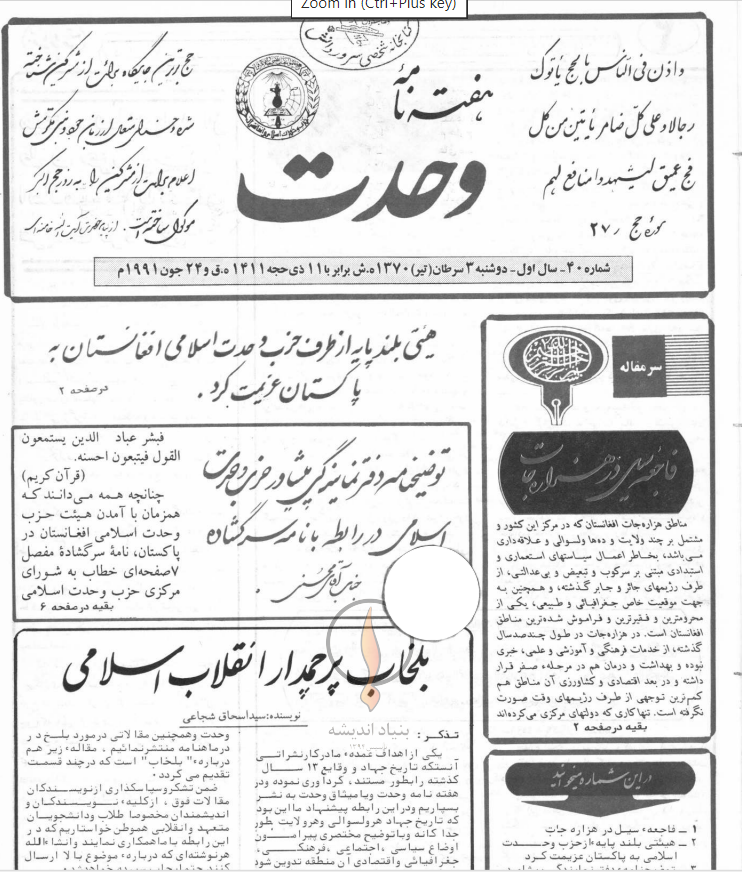 Zoom in (Ctrl+Plus key)
واذن فی الناس بالحج یأتوک
رجالا وعلی کل ضامر یأتین من کل
فج عمیق لیشهدوا منافع لهم
سوره حج ر ۲۷
هفته نامه
وحدت
حج برترین جایگاه برائت از مشرکین شناخته
اعلام برائت از مشرکین را به روز حج اکبر
شماره ۴۰- سال اول- دوشنبه ۳ سرطان (تیر) ۱۳۷۰ ه.ش برابر با ۱۱ ذی حجه ۱۴۱۱ ه.ق و ۲۴ جون ۱۹۹۱م
سر مقاله
فاجعه سیل در هزاره جات
مناطق هزاره‌جات افغانستان که در مرکز این کشور و
مشتمل بر چند ولایت و ده‌ها ولسوالی و علاقه‌داری
می‌باشد، بخاطر اعمال سیاستهای استعماری و
استبدادی مبتنی بر سرکوب و تبعیض و بی‌عدالتی، از
طرف رژیمهای جائر و جابر گذشته، و همچنین به
جهت موقعیت خاص جغرافیائی و طبیعی، یکی از
محرومترین و فقیرترین و فراموش شده‌ترین مناطق
افغانستان است. در هزاره‌جات در طول چندصدسال
گذشته، از خدمات فرهنگی و آموزشی و علمی، خبری
نبوده و بهداشت و درمان هم در مرحلهء صفر قرار
داشته و در بعد اقتصادی و کشاورزی آن مناطق هم
کم‌ترین توجهی از طرف رژیمهای وقت صورت
نگرفته است. تنها کاری که دولتهای مرکزی می‌کرده‌اند
بقیه درصفحه ۲
در این شماره میخوانید
۱ ــ فاجعهء سیل در هزاره جات
۲ ــ هیئتی بلند پایهء از حزب وحدت
اسلامی به پاکستان عزیمت کرد
هیئتی بلند پایه از طرف حزب وحدت اسلامی افغانستان به
پاکستان عزیمت کرد.
درصفحه ۲
توضیحنامه دفتر نمایندگی پیشاور حزب وحدت
اسلامی در رابطه با نامه سرگشاده
جناب آقای محسنی.
فبشر عباد الدین یستمعون
القول فیتبعون احسنه.
(قرآن کریم)
چنانچه همه می‌دانند که
همزمان با آمدن هیئت حزب
وحدت اسلامی افغانستان در
پاکستان، نامهٔ سرگشادهٔ مفصل
۷صفحه‌ای خطاب به شورای
مرکزی حزب وحدت اسلامی
بقیه درصفحه ۶
بلخاب پرچمدار انقلاب اسلامی
نویسنده: سیداسحاق شجاعی
بنیاد اندیشه
تذکر:
یکی از اهداف عمدهء مادرکارنشراتی
آنستکه تاریخ جهاد و وقایع ۱۳ سال
گذشته رابطور مستند، گردآوری نموده ودر
هفته نامه وحدت ویامیثاق وحدت به نشر
بسپاریم ودراین رابطه پیشنهاد مااین بود
که تاریخ جهاد هرولسوالی وهرولایت بطور
جدا گانه وباتوضیح مختصری پیرامون
اوضاع سیاسی ،اجتماعی ،فرهنگی،
جغرافیائی واقتصادی آن منطقه تدوین شود
وحدت وهمچنین مقالاتی درمورد بلخ در
درماهنامه منتشرنمائیم ، مقالهء زیر هم
دربارهء" بلخاب" است که درچند قسمت
تقدیم می گردد .
ضمن تشکروسپاسگذاری ازنویسندکان
مقالات فوق ، ازکلیهء نویسندکان و
اندیشمندان مخصوصا طلاب ودانشجویان
متعهد وانقلابی هموطن خواستاریم که در
این رابطه باماهمکاری نمایند وانشاءالله
هرنوشته‌ای که دربارهء موضوع بالا ارسال